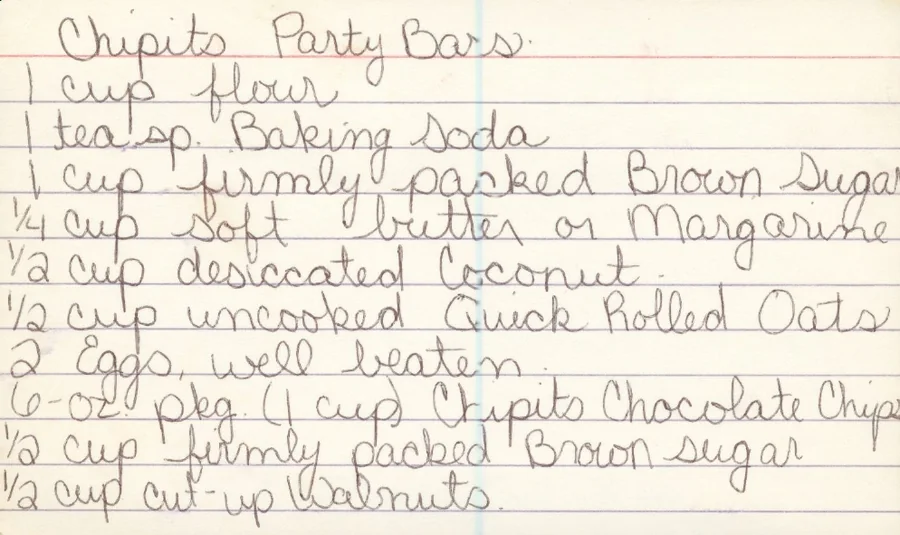 Chipits Party Bars.
1 cup flour
1 teasp. Baking Soda
1 cup firmly packed Brown Sugar
1/4 cup soft butter or Margarine
1/2 cup desiccated Coconut.
1/2 cup uncooked Quick Rolled Oats
2 Eggs, well beaten.
6-oz. pkg. (1 cup) Chipits Chocolate Chips
1/2 cup firmly packed Brown sugar
1/2 cup cut-up Walnuts.